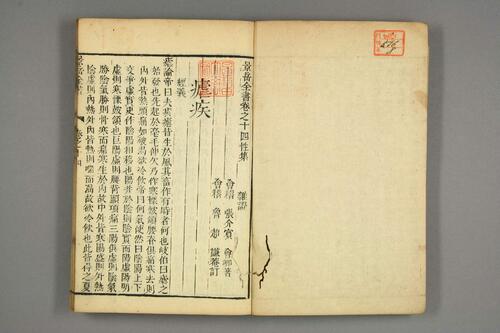 景岳全書卷之十四性集
雜證
會稽 張介賓 會卿著
會稽 魯超 謙菴訂
瘧疾
經義
瘧論帝曰夫痎瘧皆生於風其蓄作有時者何也岐伯曰瘧之
始發也先起於毫毛伸欠乃作寒慄鼓頷腰脊俱痛寒去則
內外皆熱頭痛如破渴欲冷飲帝曰何氣使然曰陰陽上下
交爭虛實更作陰陽相移也陽并於陰則陰實而陽虛陽明
虛則寒慄鼓頷也巨陽虛則腰背頭項痛三陽俱虛則陰氣
勝陰氣勝則骨寒而痛寒生於內故中外皆寒陽盛則外熱
陰虛則內熱外內皆熱則喘而渴故欲冷飲也此皆得之夏